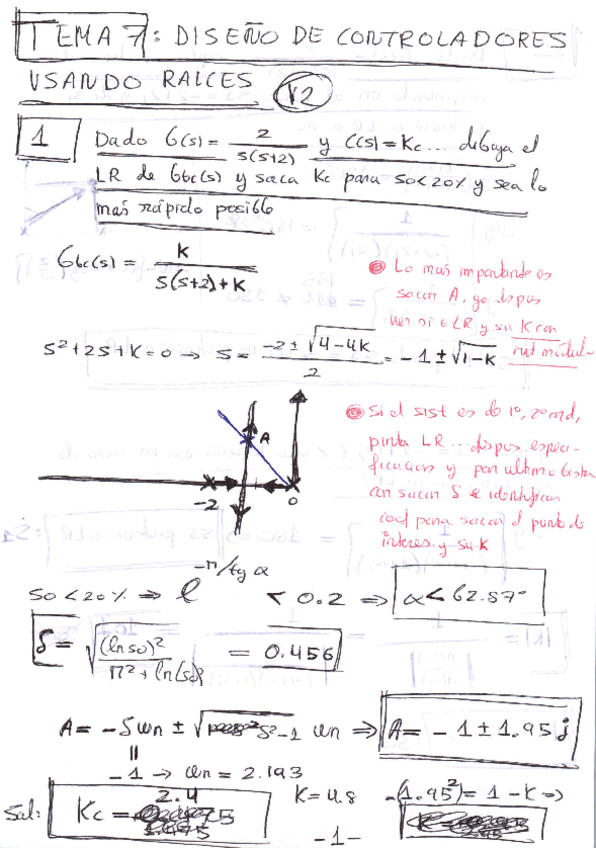 TEMA 7: DISEÑO DE CONTROLADORES
USANDO RAICES V2
1 Dado G(s) = 2 / s(s+2) y C(s) = Kc ... dibuja el
LR de Gbc(s) y saca Kc para so<20% y sea lo
más rápido posible
Gbc(s) = K / s(s+2)+K
Lo mas importante es
sacar A, ya dspus
LR y su K con
S²+2S+K=0 → S= -2±√4-4K / 2 = -1±√1-K
A
-2
0
Si el sist es de 1º, 2º ord,
pinta LR ... dspus especi-
ficacions y por ultimo
con sacar S e identifican
coef para sacar el punto d
interes y su K
so<20% ⇒ e^-π/tg α < 0.2 ⇒ α< 62.87°
δ = √(ln so)² / π²+ln(so)² = 0.456
A= -δωn ± √δ²-1 ωn ⇒ A= -1±1.95j
=
-1 → ωn = 2.193
Sol: Kc = 2.4
K=4.8
-(1.95²)= 1-K ⇒
-1-